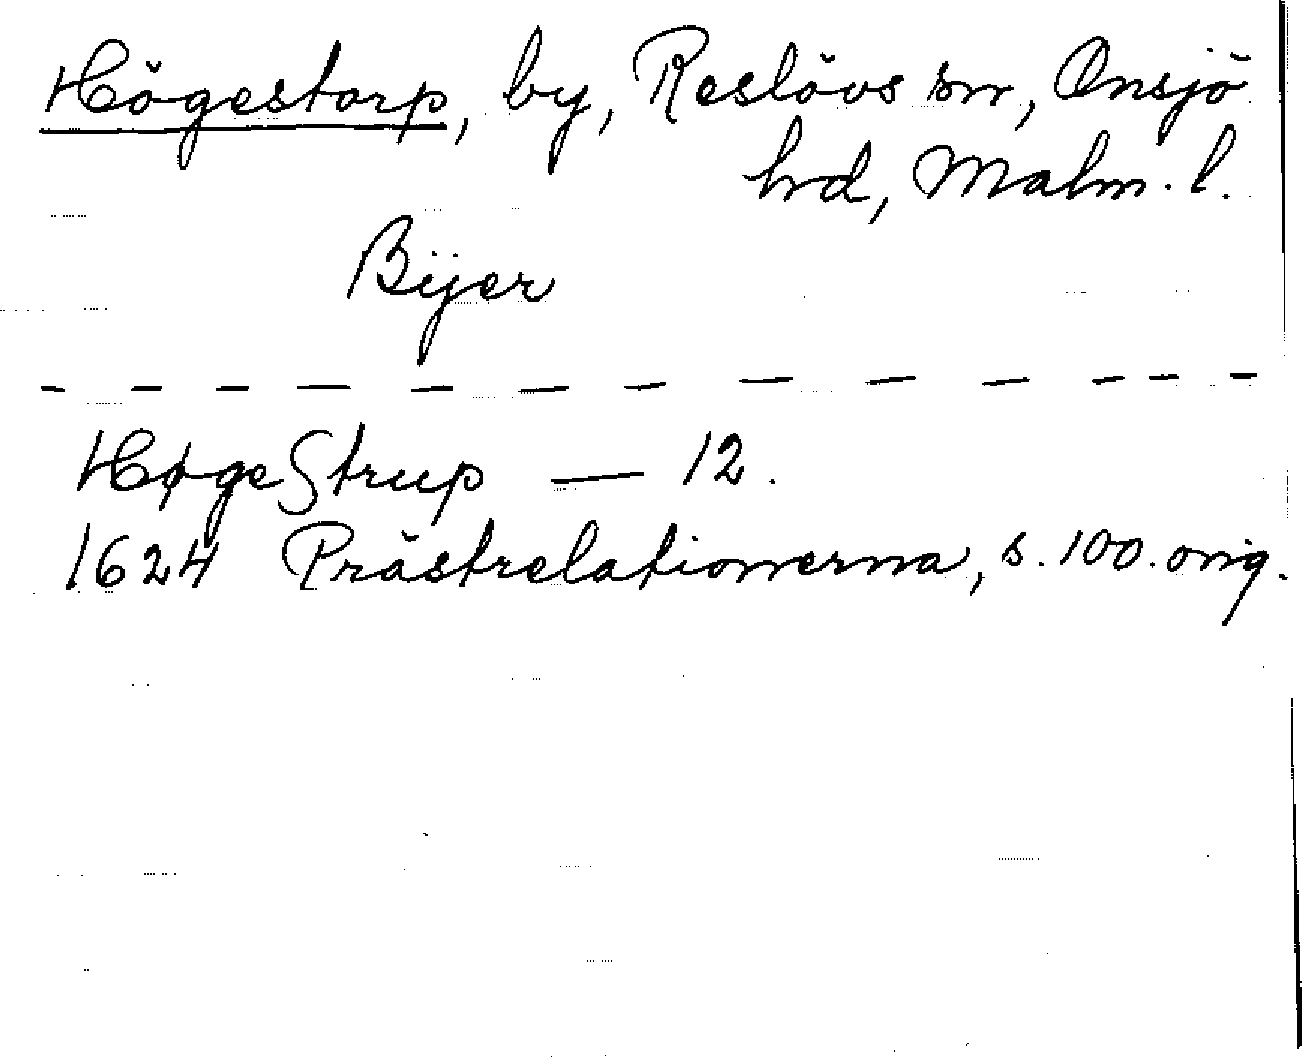 Högestorp, by, Reslövs sn, Onsjö
hd, Malm. l.
Bÿer
- - - - - - - - - - - - -
HøgeStrup — 12.
1624 Prästrelationerna, s. 100. orig.